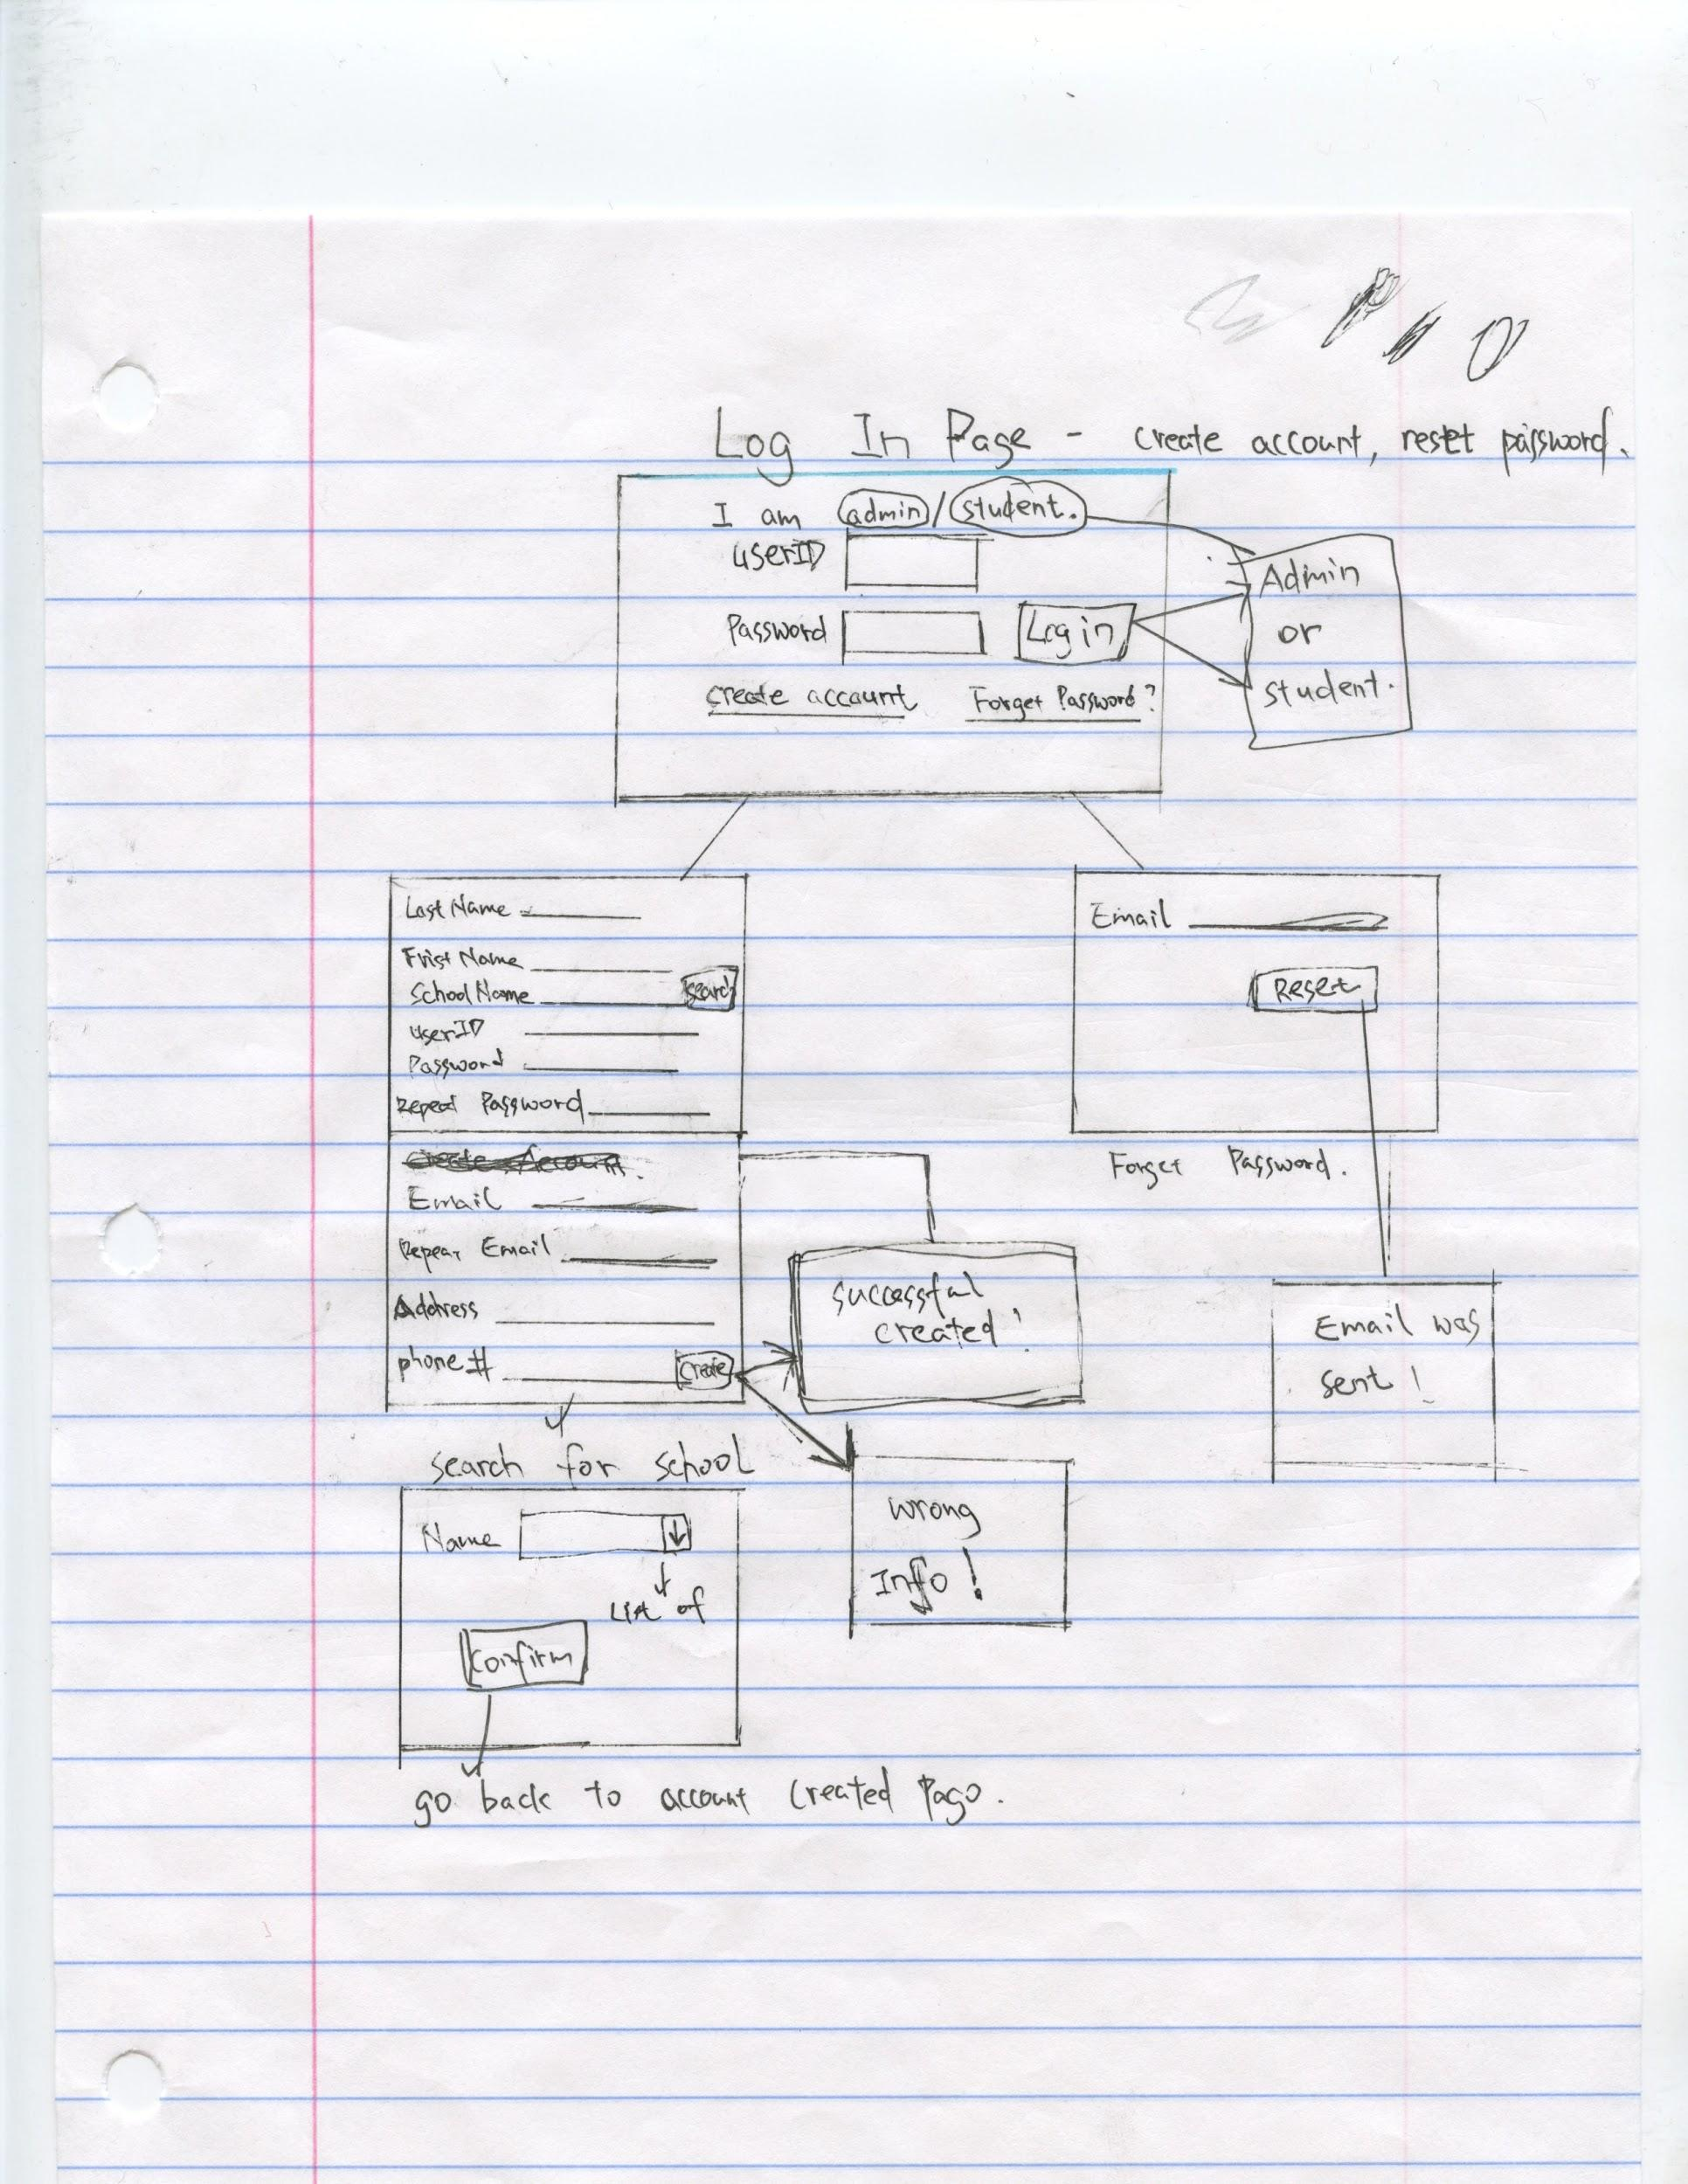 Log In Page - create account, reset password.
I am admin/student.
userID
Password
Login
create account
Forget Password?
Admin
or
student.
Last Name
Frist Name
School Name
search
userID
Password
Repeat Password
Create Account.
Email
Repeat Email
Address
phone #
create
Email
Reset
Forget Password.
Email was
sent!
successful
created!
wrong
Info!
search for school
Name
List of
confirm
go back to account created Page.